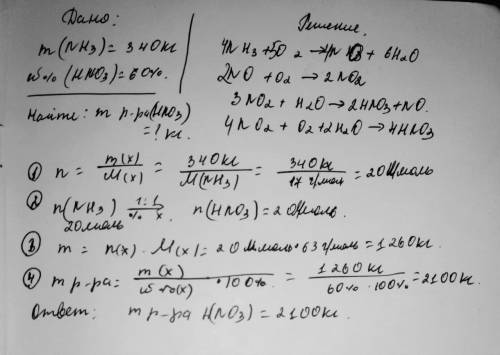 Дано:
m(NH3) = 340кг
ω% (HNO3) = 60%.
Найти: m р-ра(HNO3)
= ? кг.
Решение.
4NH3 + 5O2 → 4NO + 6H2O
2NO + O2 → 2NO2
3NO2 + H2O → 2HNO3 + NO.
4NO2 + O2 + 2H2O → 4HNO3
① n = m(x) / M(x) = 340кг / M(NH3) = 340кг / 17 г/моль = 20
② n(NH3) 1:1 n(HNO3) =
③ m = n(x) · M(x) = 20 · 63 г/моль = 1260кг.
④ m р-ра = m(x) / ω%(x) · 100% = 1260кг / 60% · 100% = 2100кг.
Ответ: m р-ра H(NO3) = 2100кг.